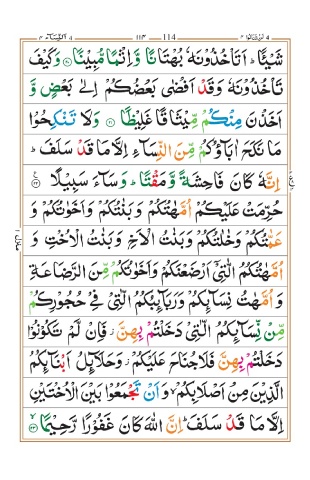 النساء ٤ ١١٣ 114 لن تنالوا ٤
شَيْئًا ؕ اَتَاْخُذُوْنَهٗ بُهْتَانًا وَّ اِثْمًا مُّبِيْنًا ﴿۲۰﴾ وَكَيْفَ
تَاْخُذُوْنَهٗ وَقَدْ اَفْضٰى بَعْضُكُمْ اِلٰى بَعْضٍ وَّ
اَخَذْنَ مِنْكُمْ مِّيْثَاقًا غَلِيْظًا ﴿۲۱﴾ وَلَا تَنْكِحُوْا
مَا نَكَحَ اٰبَآؤُكُمْ مِّنَ النِّسَآءِ اِلَّا مَا قَدْ سَلَفَ ؕ
اِنَّهٗ كَانَ فَاحِشَةً وَّمَقْتًا ؕ وَسَآءَ سَبِيْلًا ﴿۲۲﴾
حُرِّمَتْ عَلَيْكُمْ اُمَّهٰتُكُمْ وَبَنٰتُكُمْ وَاَخَوٰتُكُمْ وَ
عَمّٰتُكُمْ وَخٰلٰتُكُمْ وَبَنٰتُ الْاَخِ وَبَنٰتُ الْاُخْتِ وَ
اُمَّهٰتُكُمُ الّٰتِيْۤ اَرْضَعْنَكُمْ وَاَخَوٰتُكُمْ مِّنَ الرَّضَاعَةِ
وَ اُمَّهٰتُ نِسَآئِكُمْ وَرَبَآئِبُكُمُ الّٰتِيْ فِيْ حُجُوْرِكُمْ
مِّنْ نِّسَآئِكُمُ الّٰتِيْ دَخَلْتُمْ بِهِنَّ ؗ فَاِنْ لَّمْ تَكُوْنُوْا
دَخَلْتُمْ بِهِنَّ فَلَا جُنَاحَ عَلَيْكُمْ ؗ وَحَلَآئِلُ اَبْنَآئِكُمُ
الَّذِيْنَ مِنْ اَصْلَابِكُمْ ۙ وَ اَنْ تَجْمَعُوْا بَيْنَ الْاُخْتَيْنِ
اِلَّا مَا قَدْ سَلَفَ ؕ اِنَّ اللّٰهَ كَانَ غَفُوْرًا رَّحِيْمًا ﴿۲۳﴾